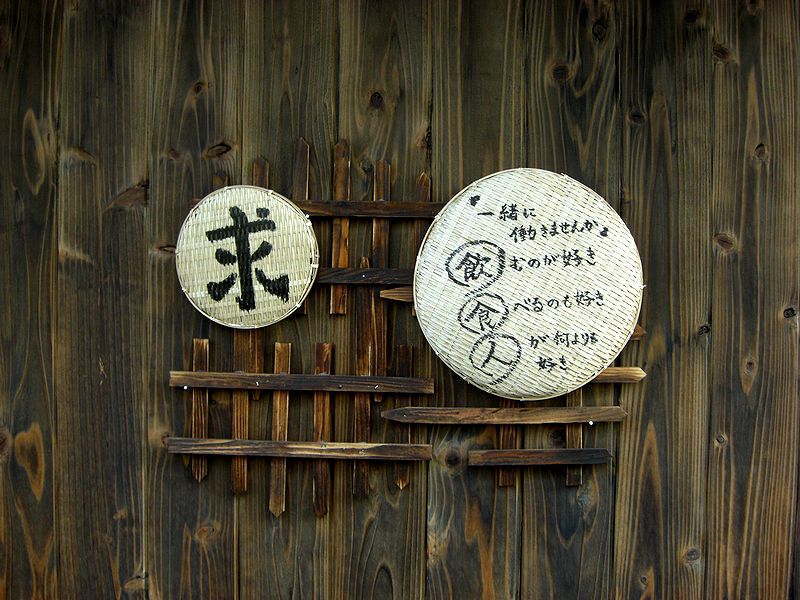 求
「一緒に
働きませんか」
飲むのが好き
食べるのも好き
人が何よりも
好き